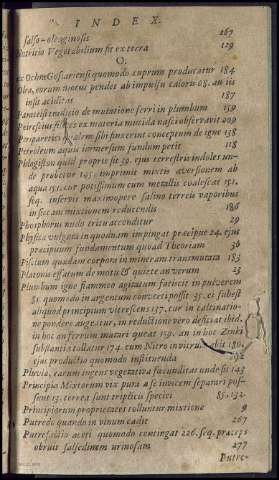 INDEX.
salso-oleaginosis 267
Nutritio Vegetabilium fit ex terra 129
O.
ex Ochra Goslariensi quomodo cuprum producatur 184
Olea, eorum motus pendet ab impulsu caloris 68. an iis
insit aciditas 187
Paniceli judicio de mutatione ferri in plumbum 159
Peirescius ex materia mucida nasci observavit 209
Peripatetici qualem sibi finxerint conceptum de igne 138
Petroleum aquis immersum fundum petit 118
Phlogiston quid proprie sit 39. ejus terrestris indoles un-
de probetur 105. imprimit mixtis aversionem ab
aqua 151. cur potissimum cum metallis coalescat 151.
seq. inservit maximopere salino terreis vaporibus
in siccam mixtionem reducendis 186
Phosphorus nudo tritu accenditur 29
Physica vulgaris in quodnam impingat præcipue 24. ejus
præcipuum fundamentum quoad Theoriam 36
Piscium quædam corpora in mineram transmutata 183
Platonis effatum de motu & quiete æternum 25
Plumbum igne flammeo agitatum fatiscit in pulverem
81. quomodo in argentum converti possit 35. ex subest
aliquod principium vitrescens 137. cur in calcinatio-
ne pondere augeatur, in reductione vero desiciat ibid.
in hoc an ferrum mutari queat 159. an in hoc Zinci
substantia collatur 174. cum Nitro in vitrum abit 180.
ejus productio quomodo instituenda 192
Pluvia, earum ingens vegetativa fæcunditas unde sit 143
Principia Mixtorum vix pura a se invicem separari pos-
sunt 15. terrea sunt triplicis speciei 85. 132.
Principiorum proprietates tolluntur mixtione 9
Putredo quando in vinum cadit 267
Putrefactio aceri quomodo contingat 226. seq. præceps
obruit salsedinem urinosam 277
Putre-